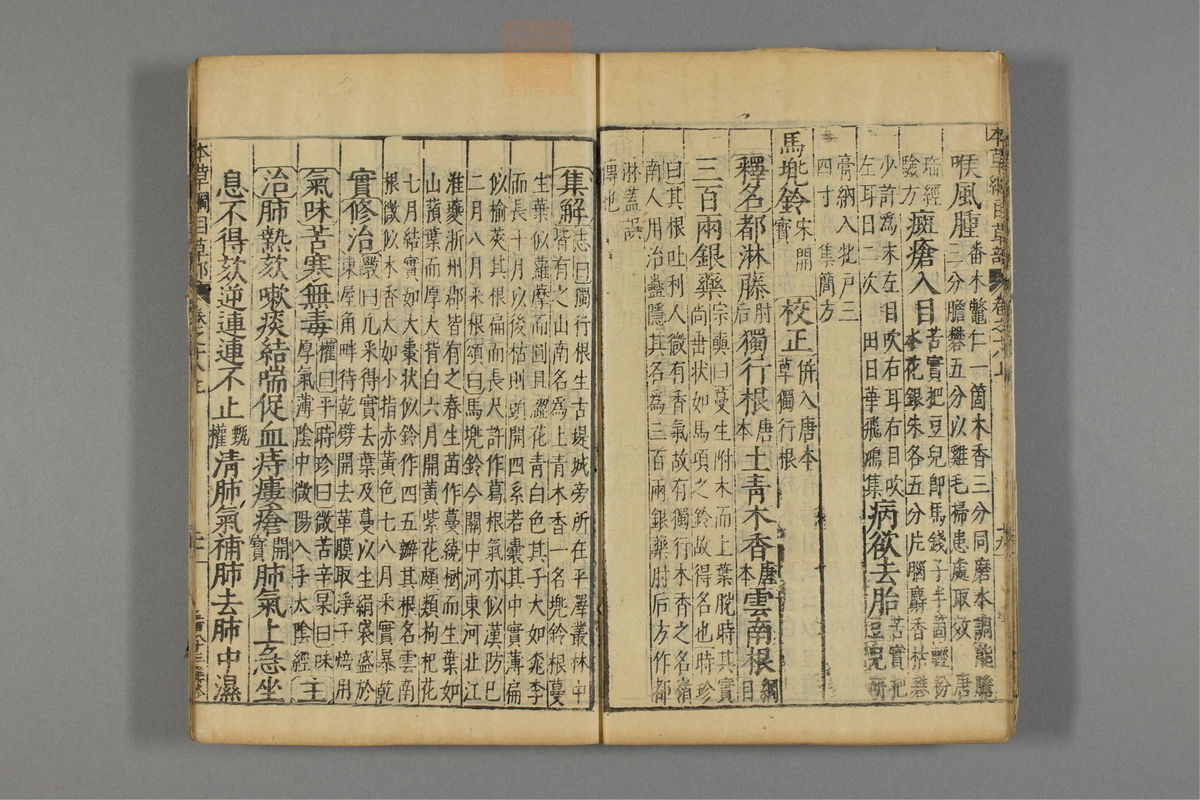 本草綱目草部 卷之十八上
喉風腫 番木鱉仁一箇木香三分同磨水調熊膽
三分膽礬五分以雞毛掃患處取效 唐
瑤經
驗方 癍瘡入目 苦實把豆兒卽馬錢子半箇輕粉
水花銀朱各五分片腦麝香枯礬
少許為末左目吹右耳右目吹
左耳日二次 田日華飛鴻集 病欲去胎 苦實把
豆兒研
膏納入牝戶三
四寸 集簡方
馬兜鈴 宋開
寶 校正 併入唐本
草獨行根
釋名都淋藤 肘
后 獨行根 唐
本 土青木香 唐
本 雲南根 綱
目
三百兩銀藥 宗奭曰蔓生附木而上葉脫時其實
尚垂狀如馬項之鈴故得名也時珍
曰其根吐利人微有香氣故有獨行木香之名嶺
南人用治蠱隱其名為三百兩銀藥肘后方作都
淋蓋誤
傳也
集解 志曰獨行根生古堤城旁所在平澤叢林中
皆有之山南名為土青木香一名兜鈴根蔓
生葉似蘿摩而圓且澀花青白色其子大如桃李
而長十月以後枯則頭開四系若囊其中實薄扁
似榆莢其根扁而長尺許作葛根氣亦似漢防已
二月八月采根頌曰馬兜鈴今關中河東河北江
淮夔浙州郡皆有之春生苗作蔓繞樹而生葉如
山蕷葉而厚大背白六月開黃紫花頗類枸杞花
七月結實如大棗狀似鈴作四五瓣其根名雲南
根微似木香大如小指赤黃色七八月采實暴乾
實修治 斅曰凡采得實去葉及蔓以生絹袋盛於
東屋角畔待乾劈開去革膜取淨子焙用
氣味苦寒無毒 權曰平時珍曰微苦辛杲曰味
厚氣薄陰中微陽入手太陰經 主
治肺熱欬嗽痰結喘促血痔瘻瘡 開
寶 肺氣上急坐
息不得欬逆連連不止 甄
權 清肺氣補肺去肺中濕
本草綱目草部 卷之十八上